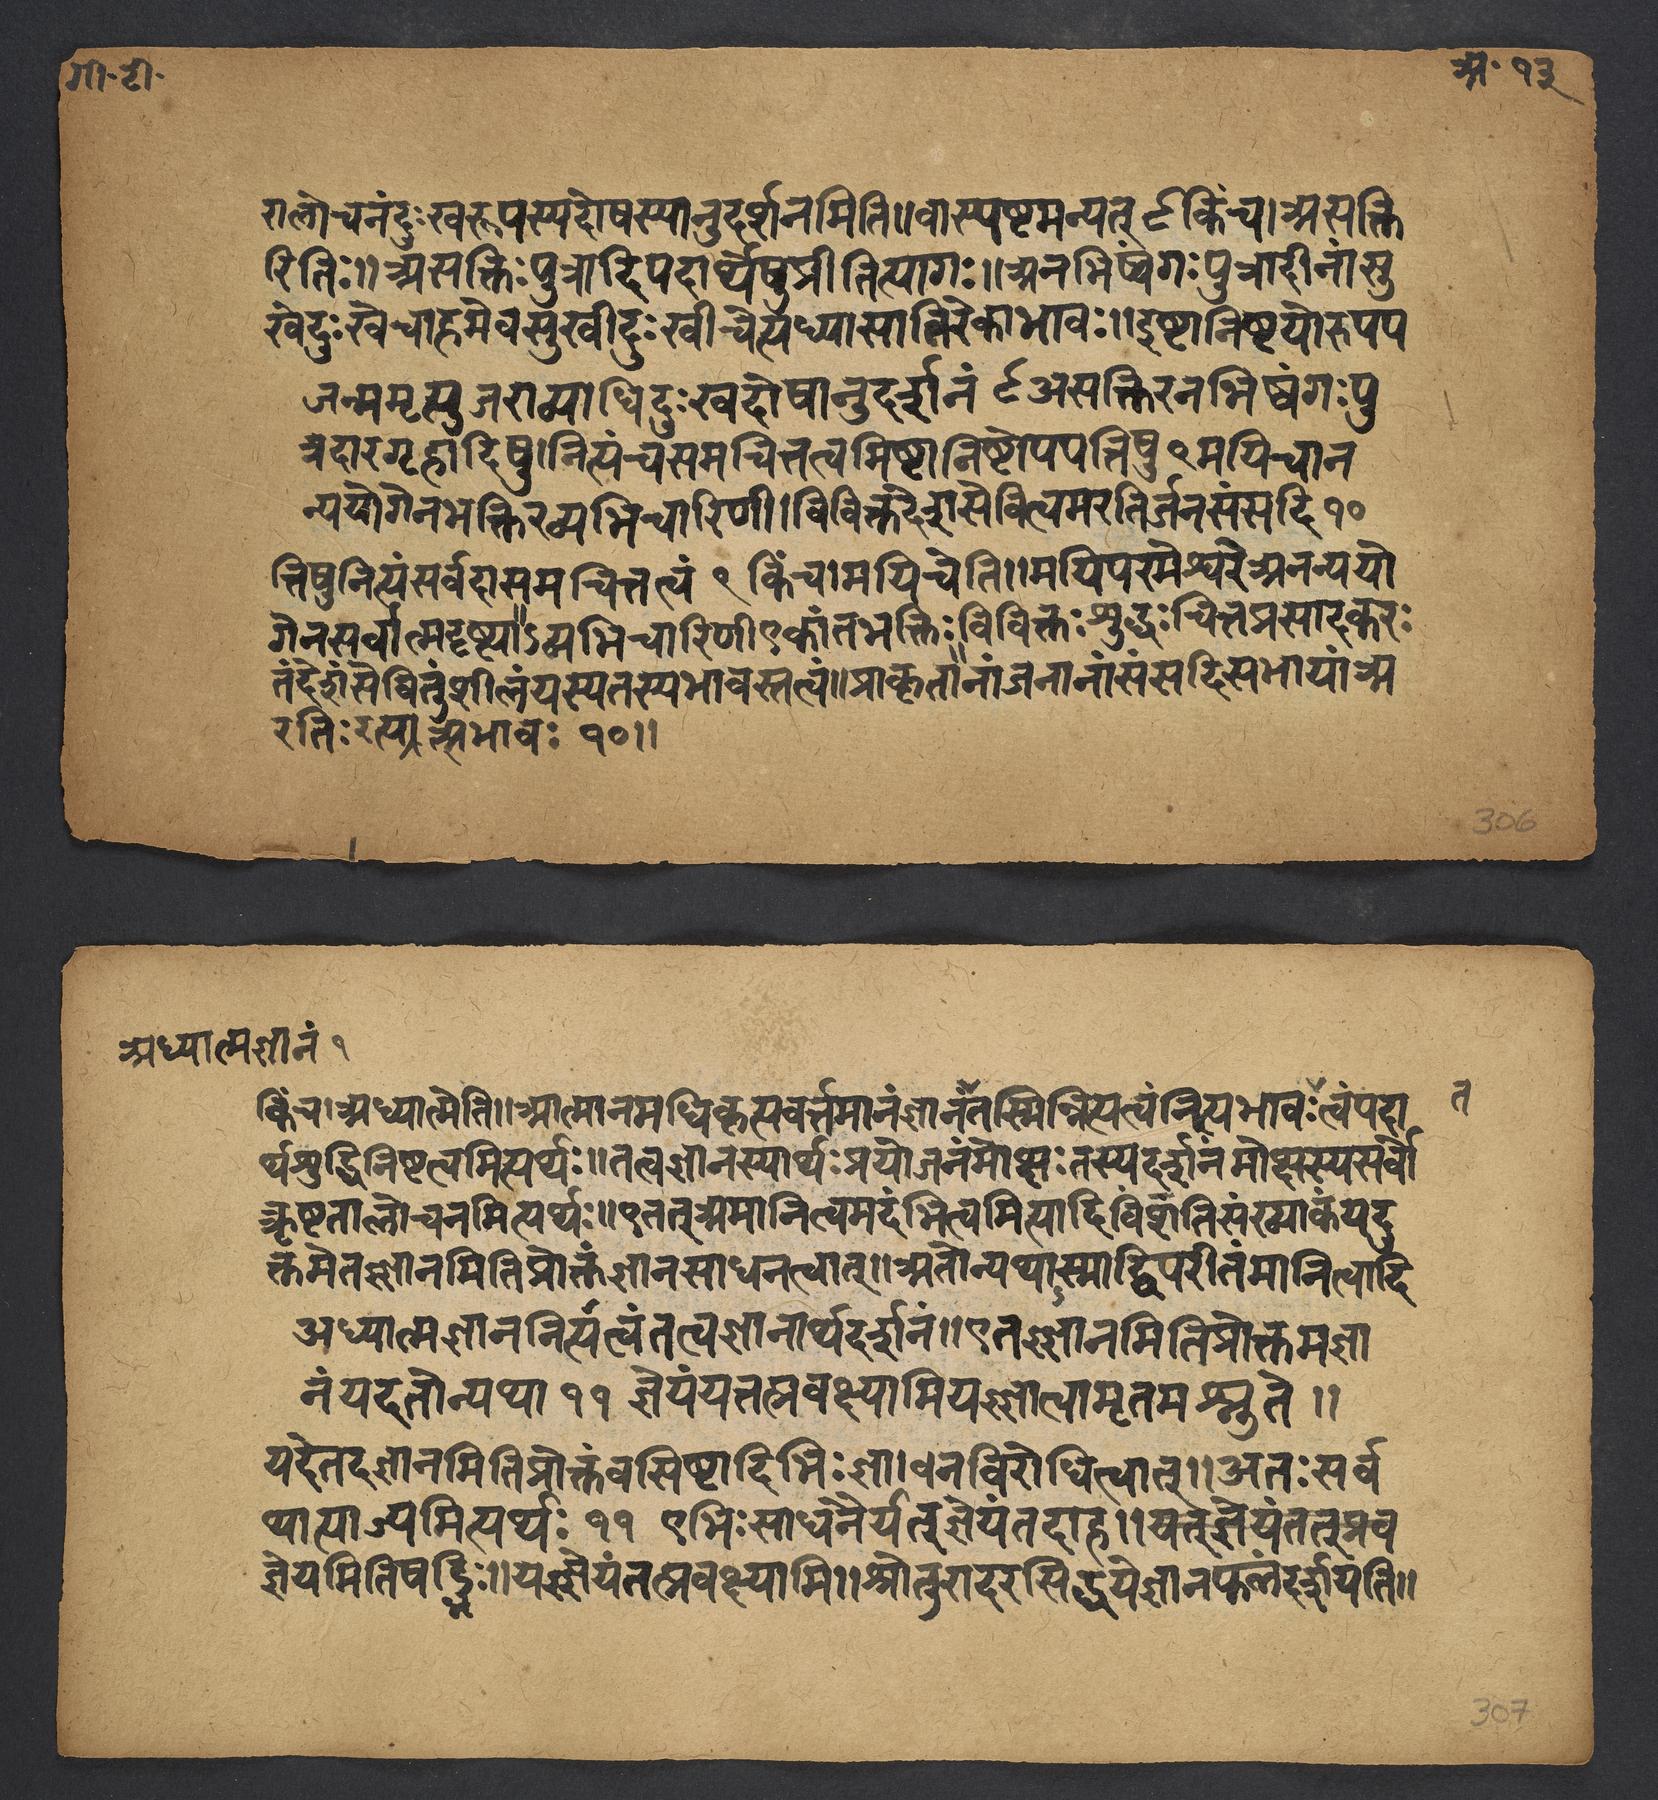 गी॰ टी॰
अ॰ १३
रालोचनंदुःखरूपस्यदोषस्यानुदर्शनमिति॥वास्पष्टमन्यत् ८ किंच।असक्ति
रितिः॥असक्तिःपुत्रादिपदार्थेषुप्रीतित्यागः॥अनभिष्वंगःपुत्रादीनांसु
खेदुःखेचाहमेवसुखीदुःखीचेत्यध्यासातिरेकाभावः॥इष्टानिष्टयोरुपप
जन्ममृत्युजराव्याधिदुःखदोषानुदर्शनं ८ असक्तिरनभिष्वंगःपु
त्रदारगृहादिषु।नित्यंचसमचित्तत्वमिष्टानिष्टोपपत्तिषु ९ मयिचान
न्ययोगेनभक्तिरव्यभिचारिणी।विविक्तदेशसेवित्वमरतिर्जनसंसदि १०
त्तिषुनित्यंसर्वदासमचित्तत्वं ९ किंच।मयिचेति॥मयिपरमेश्वरेअनन्ययो
गेनसर्वात्मदृष्ट्याऽव्यभिचारिणीएकांतभक्तिःविविक्तःशुद्धःचित्तप्रसादकरः
तंदेशंसेवितुंशीलंयस्यतस्यभावस्तत्वं॥प्राकृतानांजनानांसंसदिसभायांअ
रतिःरत्यअभावः १०॥
306
अध्यात्मज्ञानं १
किंच।अध्यात्मेति॥आत्मानमधिकृत्यवर्त्तमानंज्ञानंतस्मिन्नित्यत्वंनित्यभावःत्वंपदा
त
र्थशुद्धिनिष्टत्वमित्यर्थः॥तत्वज्ञानस्यार्थःप्रयोजनंमोक्षःतस्यदर्शनंमोक्षस्यसर्वो
त्कृष्टतालोचनमित्यर्थः॥एतत्अमानित्वमदंभित्वमित्यादिविंशतिसंख्याकंयदु
क्तमेतज्ज्ञानमितिप्रोक्तंज्ञानसाधनत्वात्॥अतोन्यथास्माद्विपरीतंमानित्वादि
अध्यात्मज्ञाननित्यत्वंतत्वज्ञानार्थदर्शनं॥एतज्ज्ञानमितिप्रोक्तमज्ञा
नंयदतोन्यथा ११ ज्ञेयंयत्तत्प्रवक्ष्यामियज्ज्ञात्वामृतमश्नुते॥
यदेतदज्ञानमितिप्रोक्तंवसिष्टादिभिःज्ञा।धनविरोधित्वात्॥अतःसर्व
थात्याज्यमित्यर्थः ११ एभिःसाधनैर्यत्ज्ञेयंतदाह॥यत्ज्ञेयंतत्प्रव
ज्ञेयमितिषड्भिः॥यज्ज्ञेयंतत्प्रवक्ष्यामि॥श्रोतुरादरसिद्धयेज्ञानफलंदर्शयति॥
307